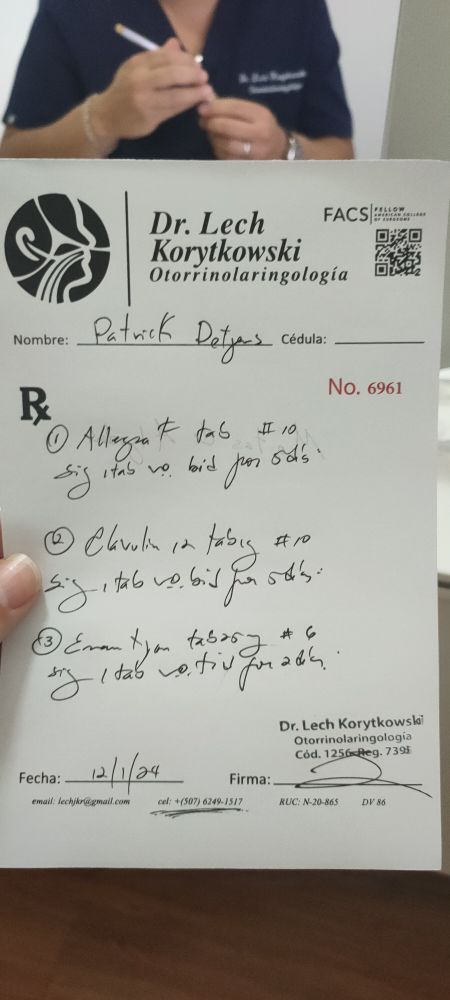 FACS FELLOW
AMERICAN COLLEGE
OF SURGEONS
Dr. Lech
Korytkowski
Otorrinolaringología
Nombre: Patrick Cédula:
No. 6961
Rx
① Allegra tab #10
sig 1 tab v.o. bid por 5 días.
② Clavulin 12 #10
sig 1 tab v.o. bid por 5 días.
③ # 6
sig 1 tab v.o. tid por 2 días.
Dr. Lech Korytkowski
Otorrinolaringología
Cód. 1256 Reg. 7395
Fecha: 12/1/24 Firma:
email: lechjkr@gmail.com cel: +(507) 6249-1517 RUC: N-20-865 DV 86